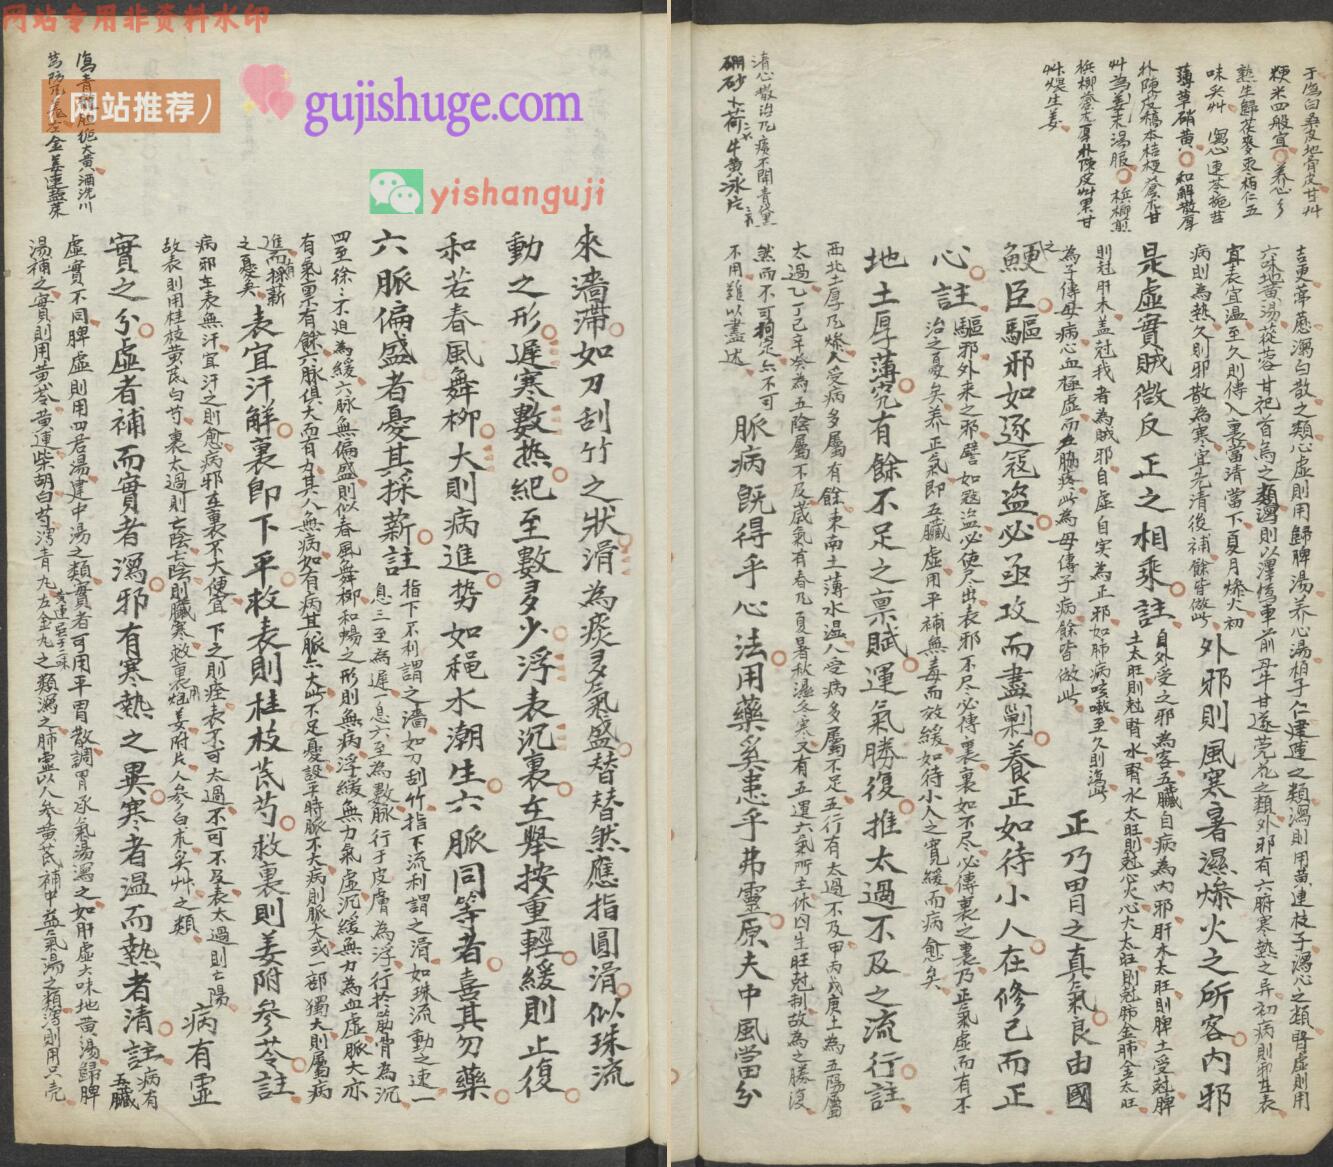 网站专用非资料水印
(网站推荐)
gujishuge.com
yishanguji
來濇滯如刀刮竹之狀滑為痰多氣盛替替然應指圓滑似珠流
動之形遲寒數热紀至數多少浮表沉裏在舉按重輕緩則止復
和若春風舞柳大則病進势如䋲水潮生六脈同等者喜其勿藥
六脈偏盛者憂其採薪註
指下不利謂之濇如刀刮竹指下流利謂之滑如珠流動之速一
息三至為遲一息六至為數脈行于皮膚為浮行於筋骨為沉
四至徐徐不迫為緩六脈無偏盛則似春風舞柳和暢之形則無病浮緩無力氣虛沉緩無力為血虛脈大亦
有氣禀有餘六脈俱大而有力其人無病如有病其脈亦大此不足憂設平時脈不大病則脈大或一部獨大則屬病
進而有採薪
之憂矣
表宜汗解裏即下平救表則桂枝芪芍救裏則姜附參苓註
病邪在表無汗宜汗之則愈病邪在裏不大便宜下之則痊表不可太過不可不及表太過則亡陽
故表則用桂枝黄芪白芍裏太過則亡陰亡陰則臟寒救裏用炮姜附片人參白朮炙艸之類
病有虛
實之分虛者補而實者瀉邪有寒熱之異寒者温而熱者清註
病有
五臟
虛實不同脾虛則用四君湯建中湯之類實者可用平胃散調胃承氣湯瀉之如肝虛六味地黄湯歸脾
湯補之實則用黄芩黄連柴胡白芍瀉青丸左金丸之類瀉之肺虛以人參黄芪補中益氣湯之類瀉則用只壳
于瀉白桑皮地骨皮甘艸
粳米四般宜養心
熟生歸茯麥枣柏仁五
味炙艸瀉心連芩梔苷
薄草硝黄和解散厚
朴陳皮槁本桔梗蒼朮甘
艸為姜末湯服梹榔煎
梹榔蒼朮厚朴陳皮艸果甘
艸煨生姜
清心散治凡痰不開青黛
硼砂薄荷牛黄冰片
吉更葶藶瀉白散之類心虛則用歸脾湯养心湯柏子仁建蓮之類瀉則用黄連枝子瀉心之類腎虛則用
六味地黄湯蓯蓉甘杞首烏之類瀉則以澤瀉車前丹牛甘遂芫花之類外邪有六腑寒熱之异初病則邪在表
宜表宜温至久則傳入裏當清當下夏月燥火初
病則為熱久則邪散為寒宜先清後補餘皆倣此
外邪則風寒暑濕燥火之所客内邪
是虛實賊微反正之相乘註
自外受之邪為客五臟自病為内邪肝木太旺則脾土受尅脾
土太旺則尅腎水腎水太旺則尅心火心火太旺則尅肺金肺金太旺
則尅肝木盖尅我者為賊邪自虛自实為正邪如肺病咳嗽至久則瀉此
為子傳母病心血極虛而為腦疼此為母傳子病餘皆倣此
正乃田日之真氣良由國
之鯁臣驅邪如逐寇盗必亟攻而盡剿養正如待小人在修己而正
心註
驅邪外來之邪譬如寇盗必使尽出表邪不尽必傳裏裏如不尽必傳裏之裏乃正氣虛而有不
治之憂矣养正氣即五臟虛用平補無毒而放緩如待小人之寬緩而病愈矣
地土厚薄究有餘不足之禀賦運氣勝復推太過不及之流行註
西北土厚乃燥人受病多屬有餘東南土薄水温人受病多屬不足五行有太過不及甲丙戊庚土為五陽屬
太過乙丁己辛癸為五陰屬不及歲氣有春夏暑秋濕冬寒又有五運六氣所主休囚生旺尅制故為之勝復
然而不可狥定亦不可
不用難以盡述
脈病既得乎心法用藥奚患乎弗靈原夫中風當分